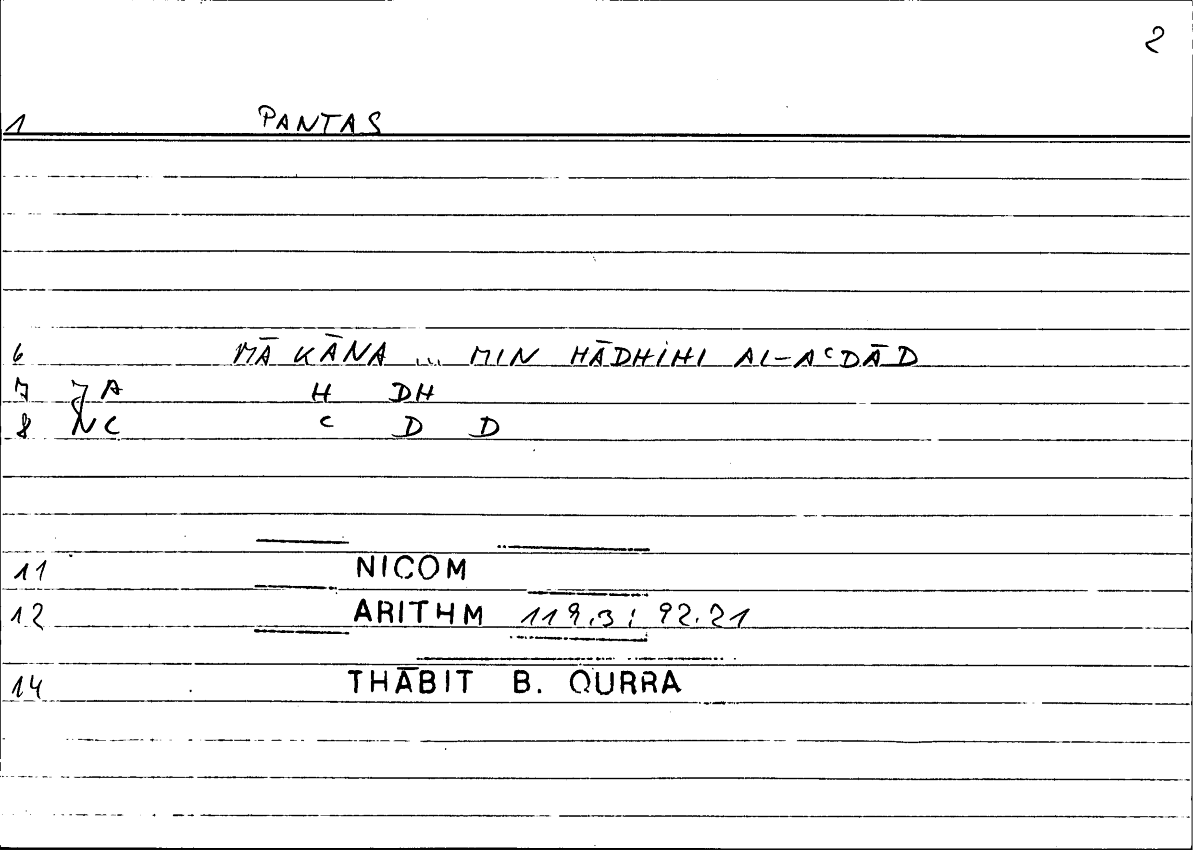 2
1 PANTAS
6 MĀ KĀNA ... MIN HĀDHIHI AL-AᶜDĀD
7 JA H DH
8 NC ᶜ D D
11 NICOM
12 ARITHM 119.3; 92.21
14 THĀBIT B. QURRA